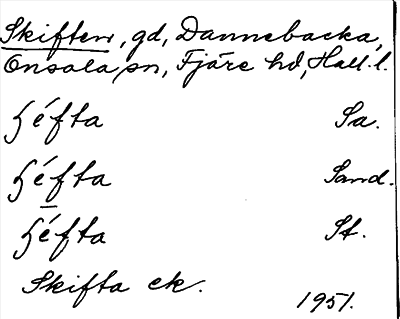 Skiften, gd, Dannebacka,
Onsala sn, Fjäre hd, Hall. l.
ʃéfta Sa.
ʃéfta Sand.
ʃéfta St.
Skifta ek.
1951.